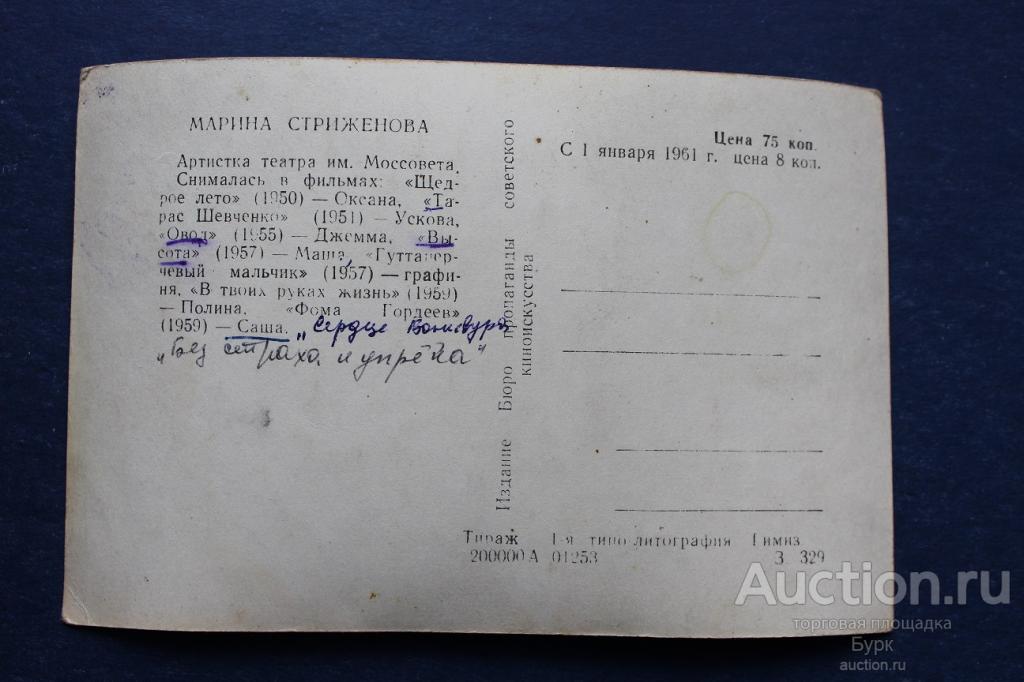 МАРИНА СТРИЖЕНОВА
Артистка театра им. Моссовета.
Снималась в фильмах: «Щед-
рое лето» (1950) — Оксана, «Та-
рас Шевченко» (1951) — Ускова,
«Овод» (1955) — Джемма, «Вы-
сота» (1957) — Маша, «Гуттапер-
чевый мальчик» (1957) — графи-
ня, «В твоих руках жизнь» (1959)
— Полина, «Фома Гордеев»
(1959) — Саша. „Сердце Бонивура
„Без страха и упрёка"
Издание Бюро пропаганды советского
киноискусства
Цена 75 коп.
С 1 января 1961 г. цена 8 коп.
Тираж 1-я типо-литография Гимиз
200000А 01253 З 329
Auction.ru
торговая площадка
Бурк
auction.ru